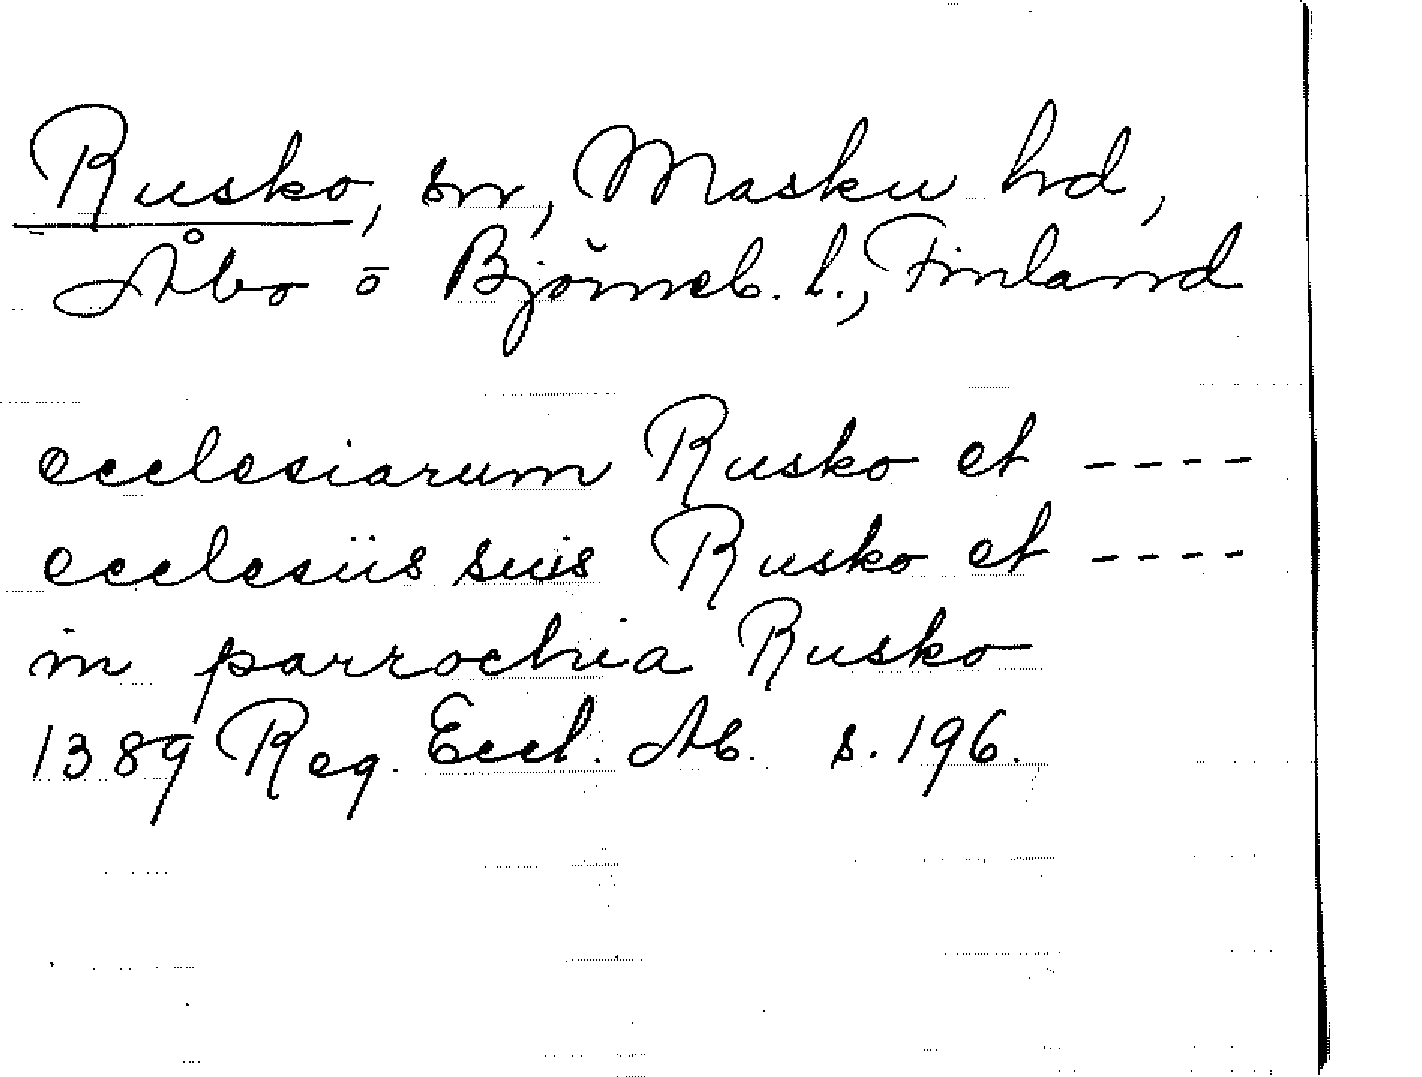 Rusko, sn, Masku hd,
Åbo o Björneb. l., Finland
ecclesiarum Rusko et ----
ecclesiis suis Rusko et ----
in parrochia Rusko
1389 Reg. Eccl. Ab. s. 196.